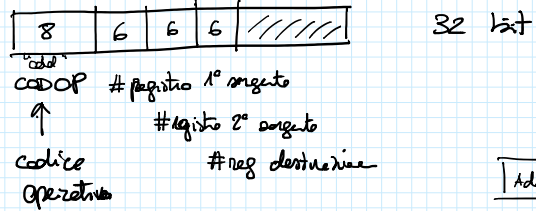 8 6 6 6 32 bit
"add"
CODOP #registro 1° sorgente
#registro 2° sorgente
codice #reg destinazione
operativo
Ad